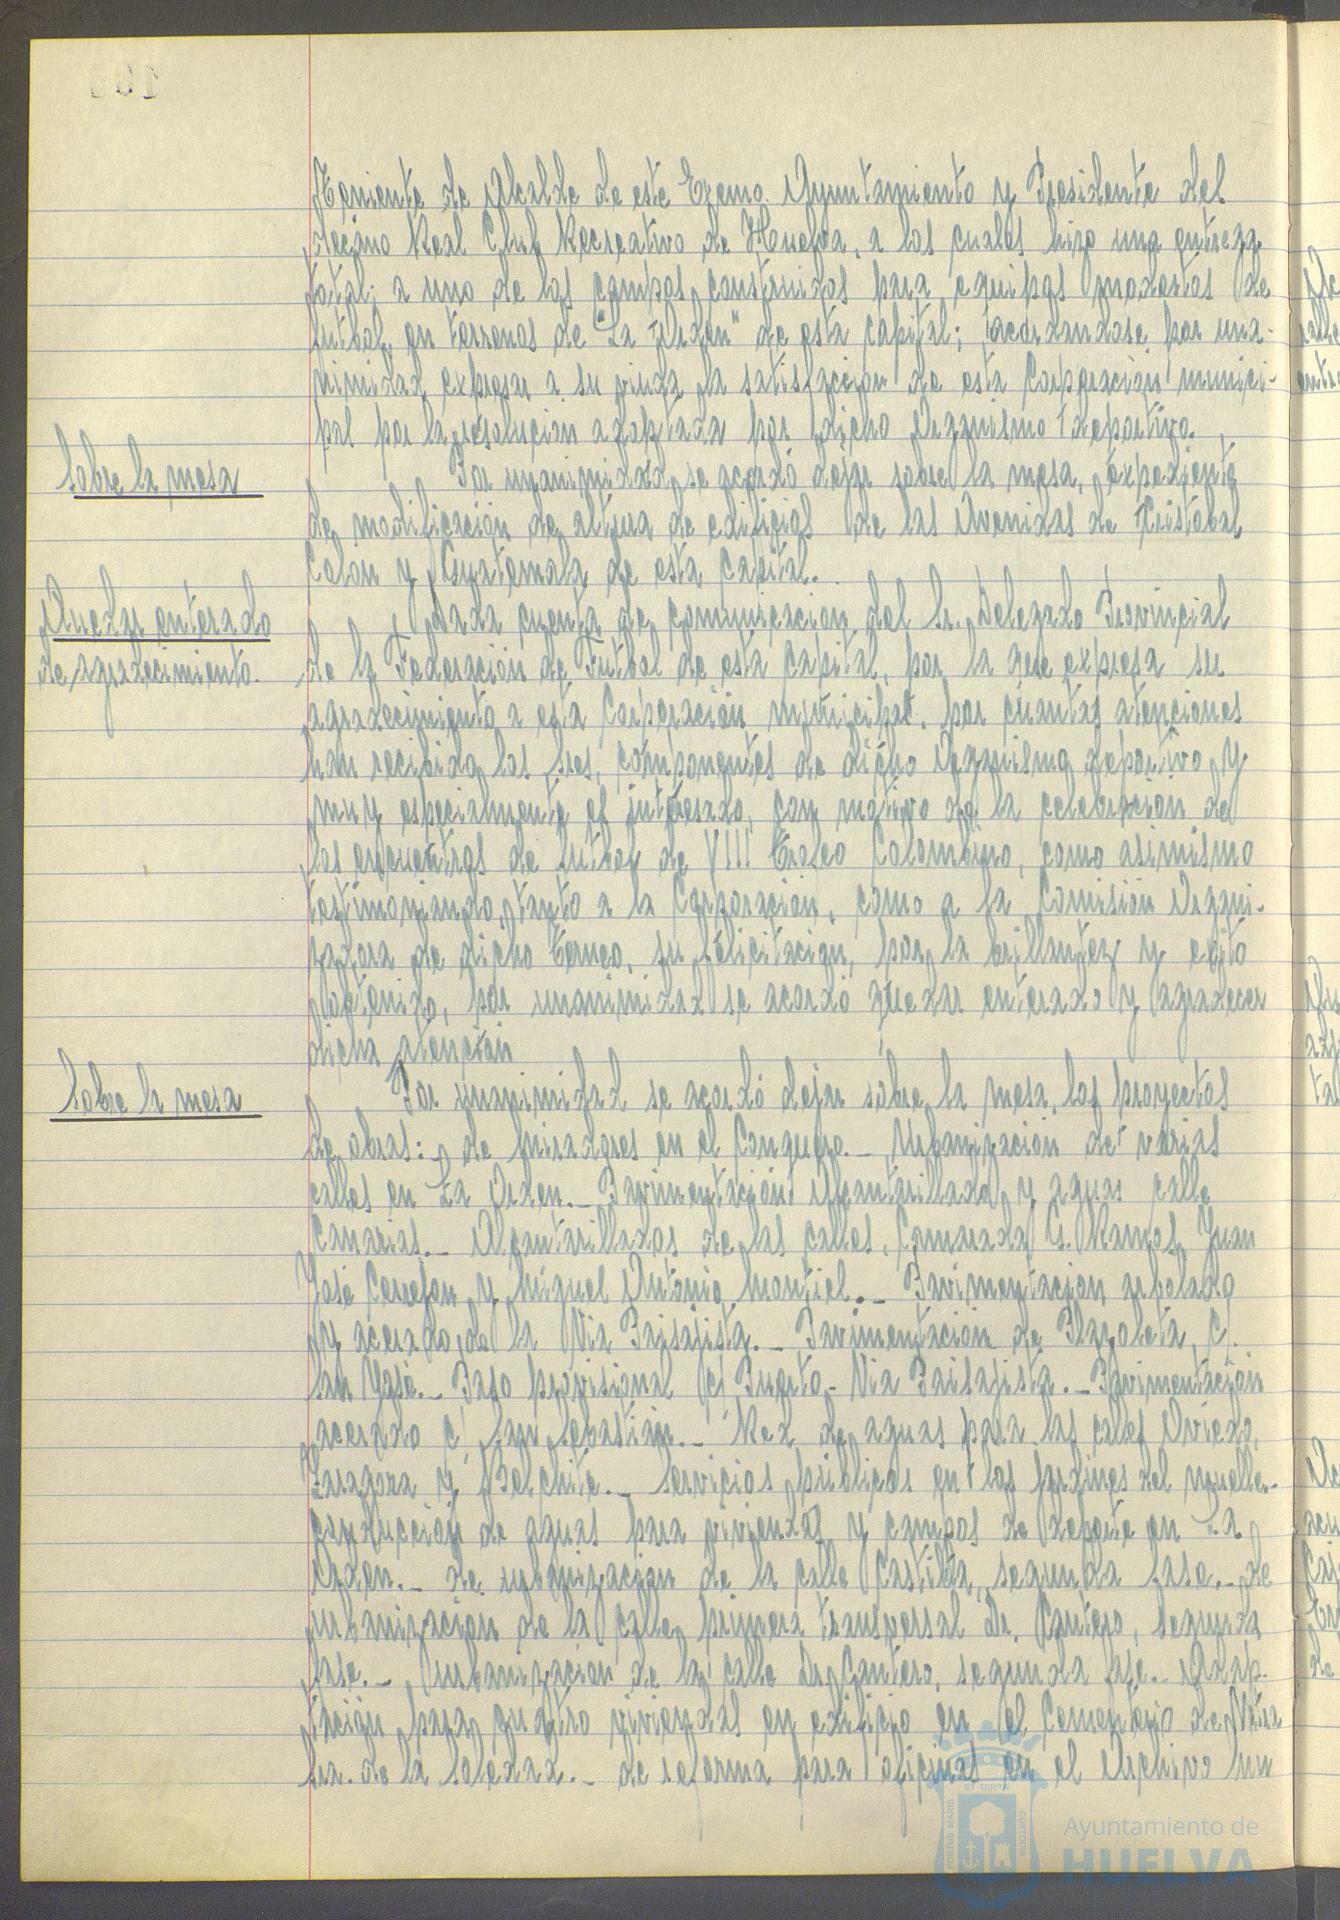 Teniente de Alcalde de este Excmo. Ayuntamiento y Presidente del
decano Real Club Recreativo de Huelva, a los cuales hizo una entrega
total; a uno de los campos construidos para equipos modestos de
futbol, en terrenos de "La Orden" de esta capital; acordandose por una-
nimidad expresar a su viuda la satisfacción de esta Corporación munici-
pal por la resolución adoptada por dicho Organismo deportivo.
Sobre la mesa
Por unanimidad se acordó dejar sobre la mesa, expediente
de modificación de altura de edificios de las Avenidas de Cristobal
Colon y Guatemala de esta capital.
Quedar enterado
de agradecimiento.
Dada cuenta de comunicación del Sr. Delegado Provincial
de la Federación de Futbol de esta capital, por la que expresa su
agradecimiento a esta Corporación municipal, por cuantas atenciones
han recibido los Sres. componentes de dicho Organismo deportivo y
muy especialmente el interesado, con motivo de la celebración de
los encuentros de futbol de VIII Trofeo Colombino, como asimismo
testimoniando, tanto a la Corporación, como a la Comisión Organi-
zadora de dicho torneo, su felicitación, por la brillantez y exito
obtenido, por unanimidad se acordó quedar enterado y agradecer
dicha atención
Sobre la mesa
Por unanimidad se acordó dejar sobre la mesa, los proyectos
de obras: de Miradores en el Conquero.- Urbanización de varias
calles en La Orden.- Pavimentación Alcantarillado y aguas calle
Canarias.- Alcantarillados de las calles, Camarada G. Ramos, Juan
José Cerrejon y Miguel Antonio Montiel.- Pavimentacion arbolado
y acerado de la Via Paisajista.- Pavimentacion de Plazoleta, C.
San José.- Paso provisional C/ Puerto - Via Paisajista.- Pavimentación
acerado C/ San Sebastián.- Red de aguas para las calles Oviedo,
Zaragoza y Belchite.- Servicios públicos en los Jardines del Muelle.-
conducción de aguas para viviendas y campos de deporte en La
Orden.- de urbanización de la calle Castilla, segunda fase.- de
urbanización de la calle primera transversal Dr. Cantero, segunda
fase.- Urbanización de la calle Dr. Cantero, segunda fase.- Adap-
tación para cuatro viviendas en edificio en el Cementerio de Ntra
Sra. de la Soledad.- de reforma para oficinas en el Archivo Mu
Ayuntamiento de
HUELVA